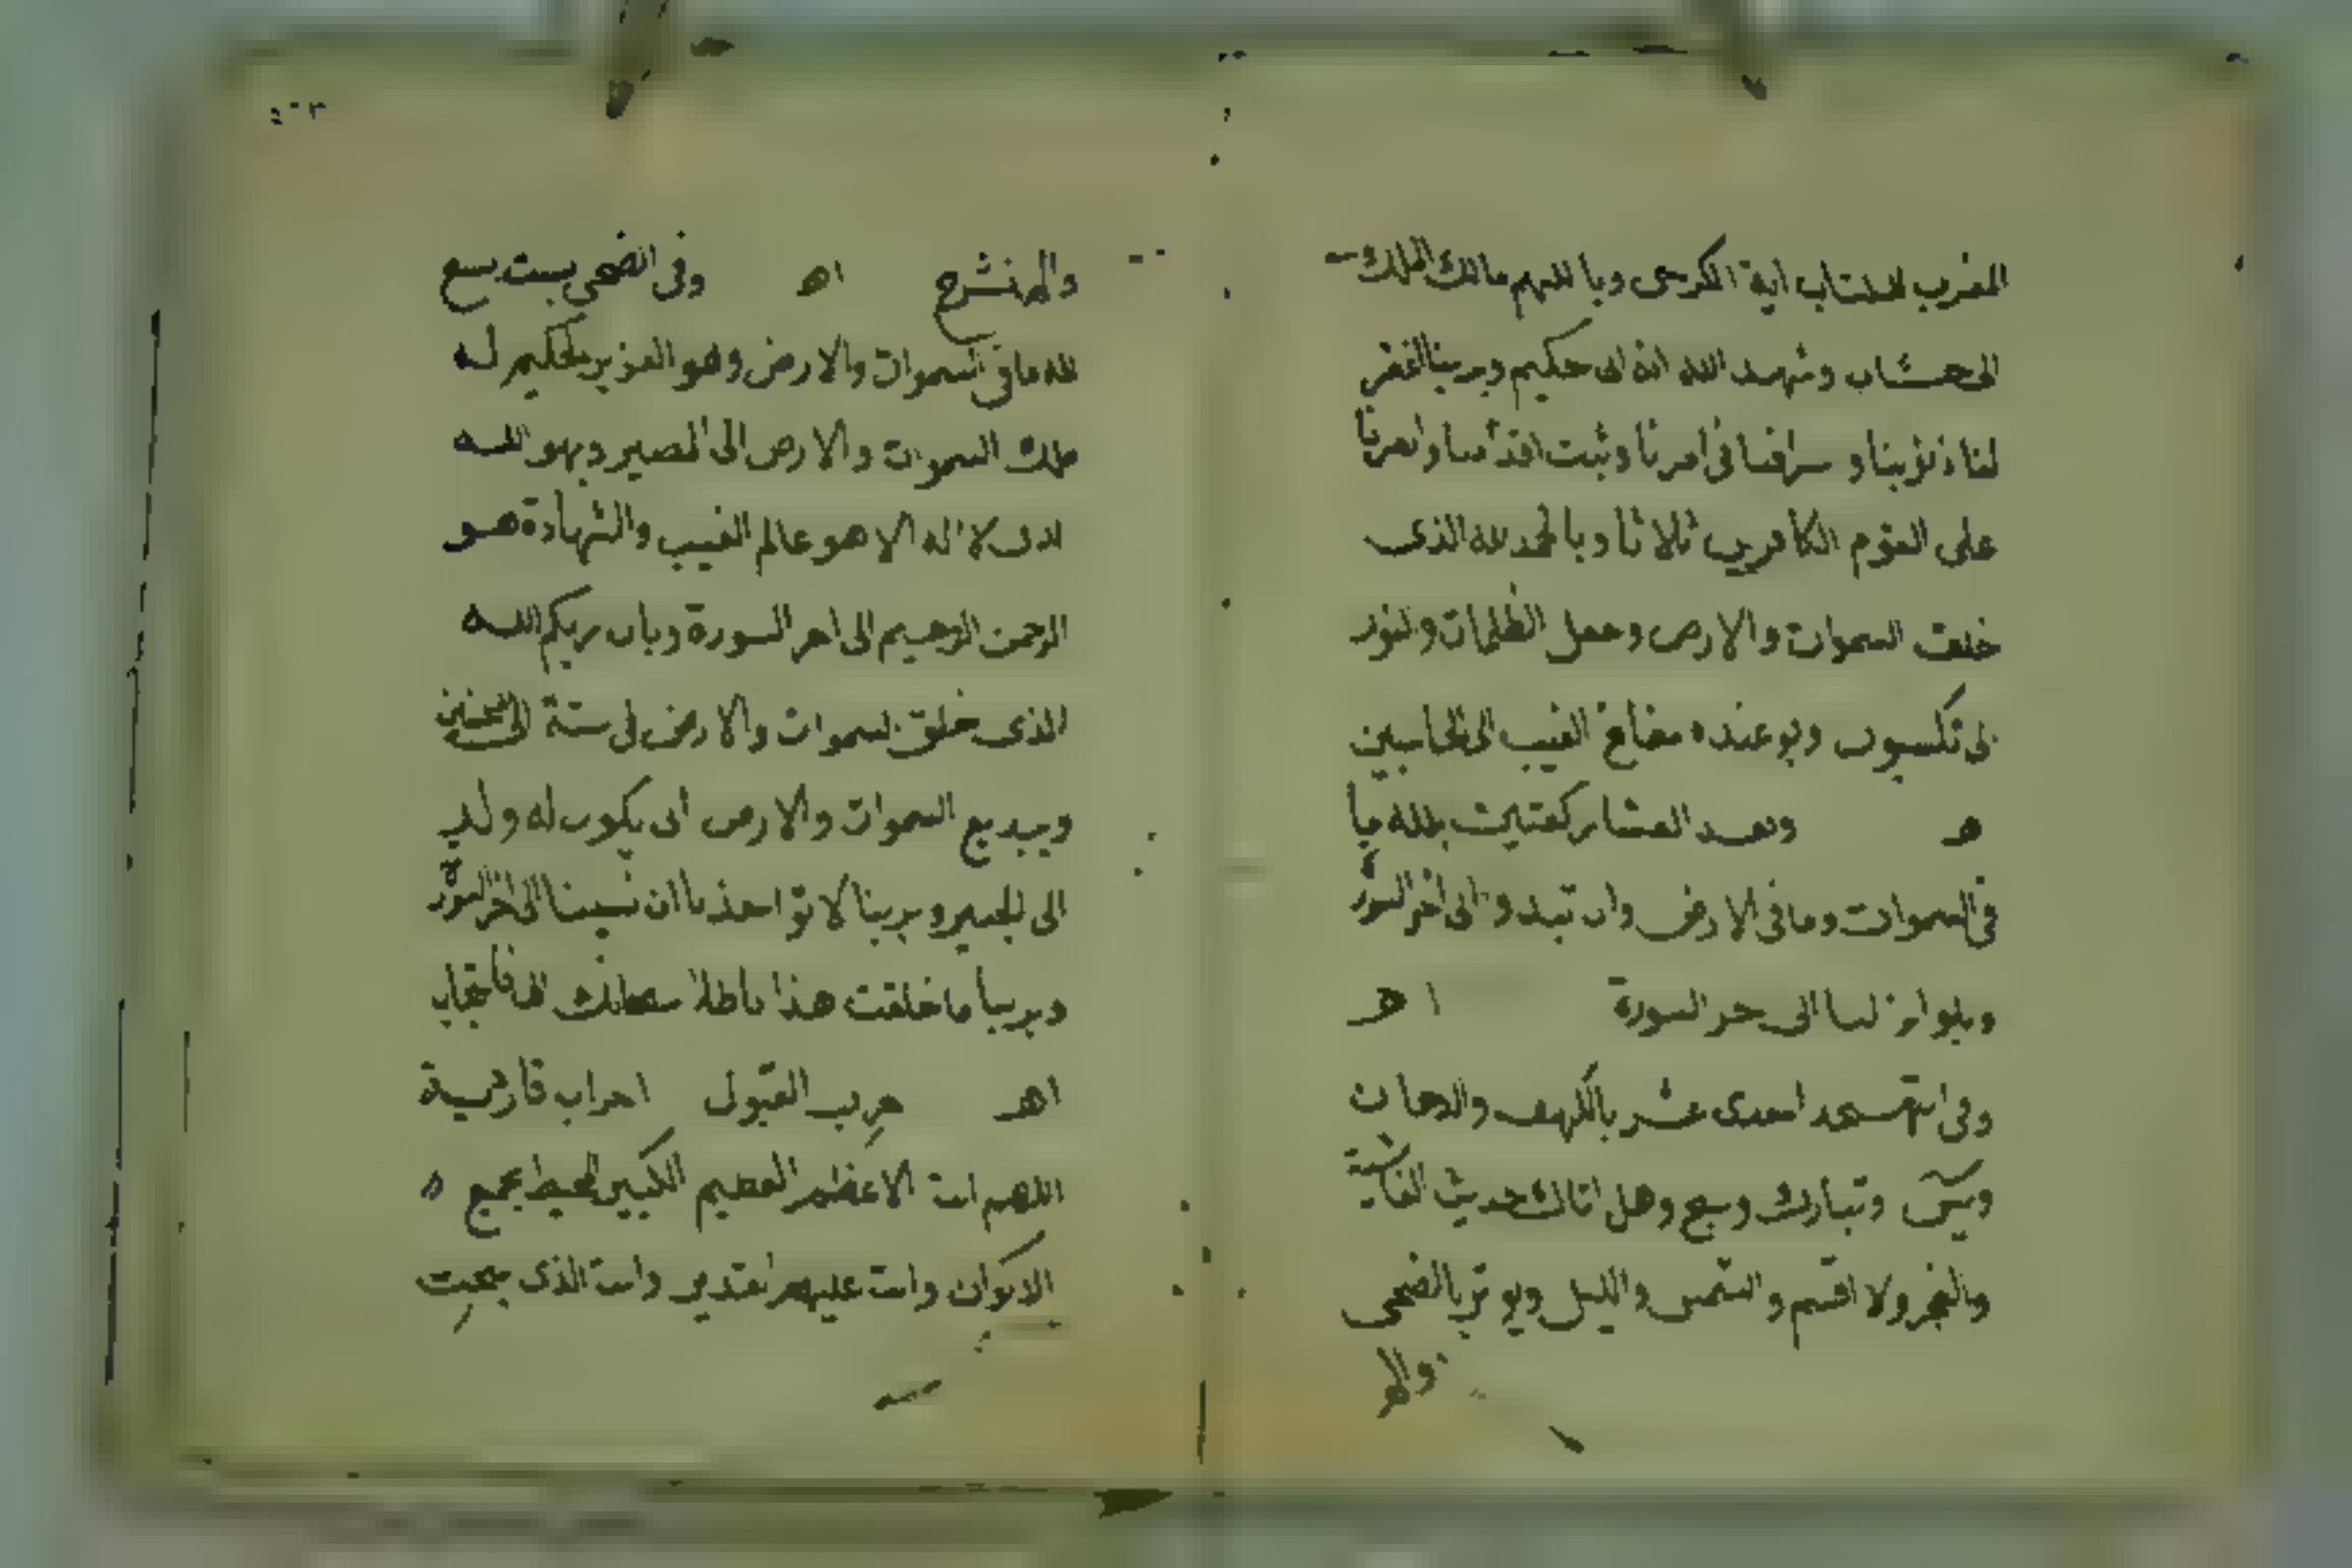 المغرب الكتاب اية الكرسى وباللهم مالك الملك
الى حساب وشهد الله انه الى حكيم وبربنا اغفر
لنا ذنوبنا و سرافنا فى امرنا وثبت اقدامنا وانصرنا
على القوم الكافرين ثلاثا وبالحمد لله الذى
خلقت السموات والارض وجعل الظلمات والنور
الى تكسبون وبوعنده مفاتح الغيب الى الحاسبين
ه وبعد العشا ركعتين بلله ما
فى السموات وما فى الارض وان تبدوا الى اخر السورة
وبلو انزلنا الى خر السورة اه
وفى التهجد احدى عشر بالكهف والدخان
ويس وتبارك وسبح وهل اتاك حديث الغاشية
والفجر ولا اقسم والشمس والليل وبو تر بالضحى
والم
والم نشرح اه وفى الضحى بست بسبح
لله ما فى السموات والارض وهو العزيز الحكيم له
ملك السموات والارض الى المصير وبهو الله
الذى لا اله الا هو عالم الغيب والشهادة هو
الرحمن الرحيم الى اخر السورة وبان ربكم الله
الذى خلق السموات والارض فى ستة الى المحسنين
وببديع السموات والارض انى يكون له ولد
الى الخبير وبربنا لا تواخذنا ان نسينا الى اخر السورة
وبربنا ما خلقت هذا باطلا سبحانك
اه حزب القبول احزاب فارسية
اللهم انت الاعظم العظيم الكبير المحيط بجميع
الاكوان وانت عليهم مقتدر وانت الذى